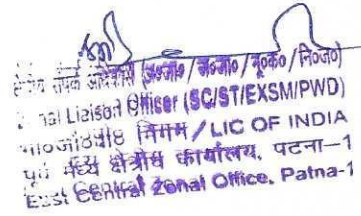 क्षेत्रीय संपर्क अधिकारी (अ०जा०/अ०ज०/भू०सै०/नि०ज०)
Zonal Liaison Officer (SC/ST/EXSM/PWD)
भा०जी०बी० निगम / LIC OF INDIA
पूर्व मध्य क्षेत्रीय कार्यालय, पटना-1
East Central Zonal Office, Patna-1